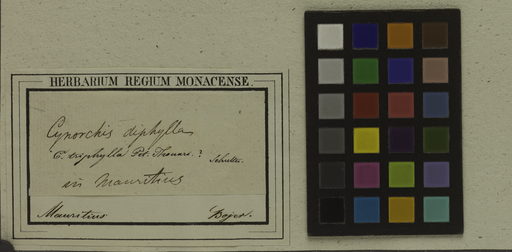 HERBARIUM REGIUM MONACENSE.
Cynorchis diphylla
C. triphylla Pet. Thouars. ? Schultes.
in Mauritius
Mauritius Bojer.